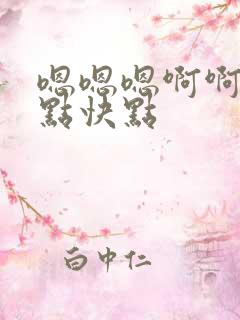 嗯嗯嗯啊啊
點快點
白中仁